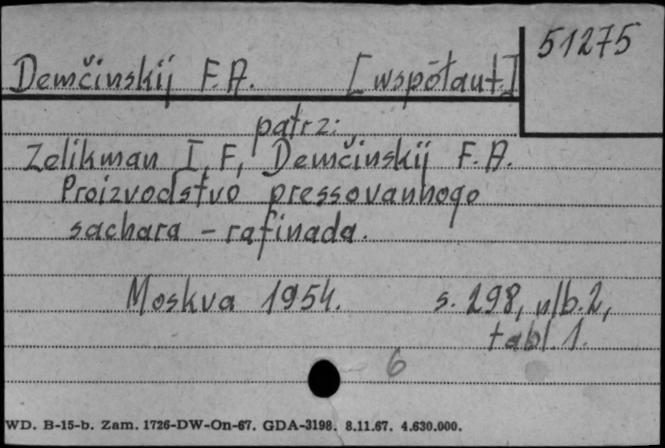 51275
Demčinskij F.A. [współaut.]
patrz:
Zelikman I.F., Demčinskij F.A.
Proizvodstvo pressovannogo
sachara - rafinada.
Moskva 1954. s. 298, nlb. 2,
tabl. 1.
6
WD. B-15-b. Zam. 1726-DW-On-67. GDA-3198. 8.11.67. 4.630.000.